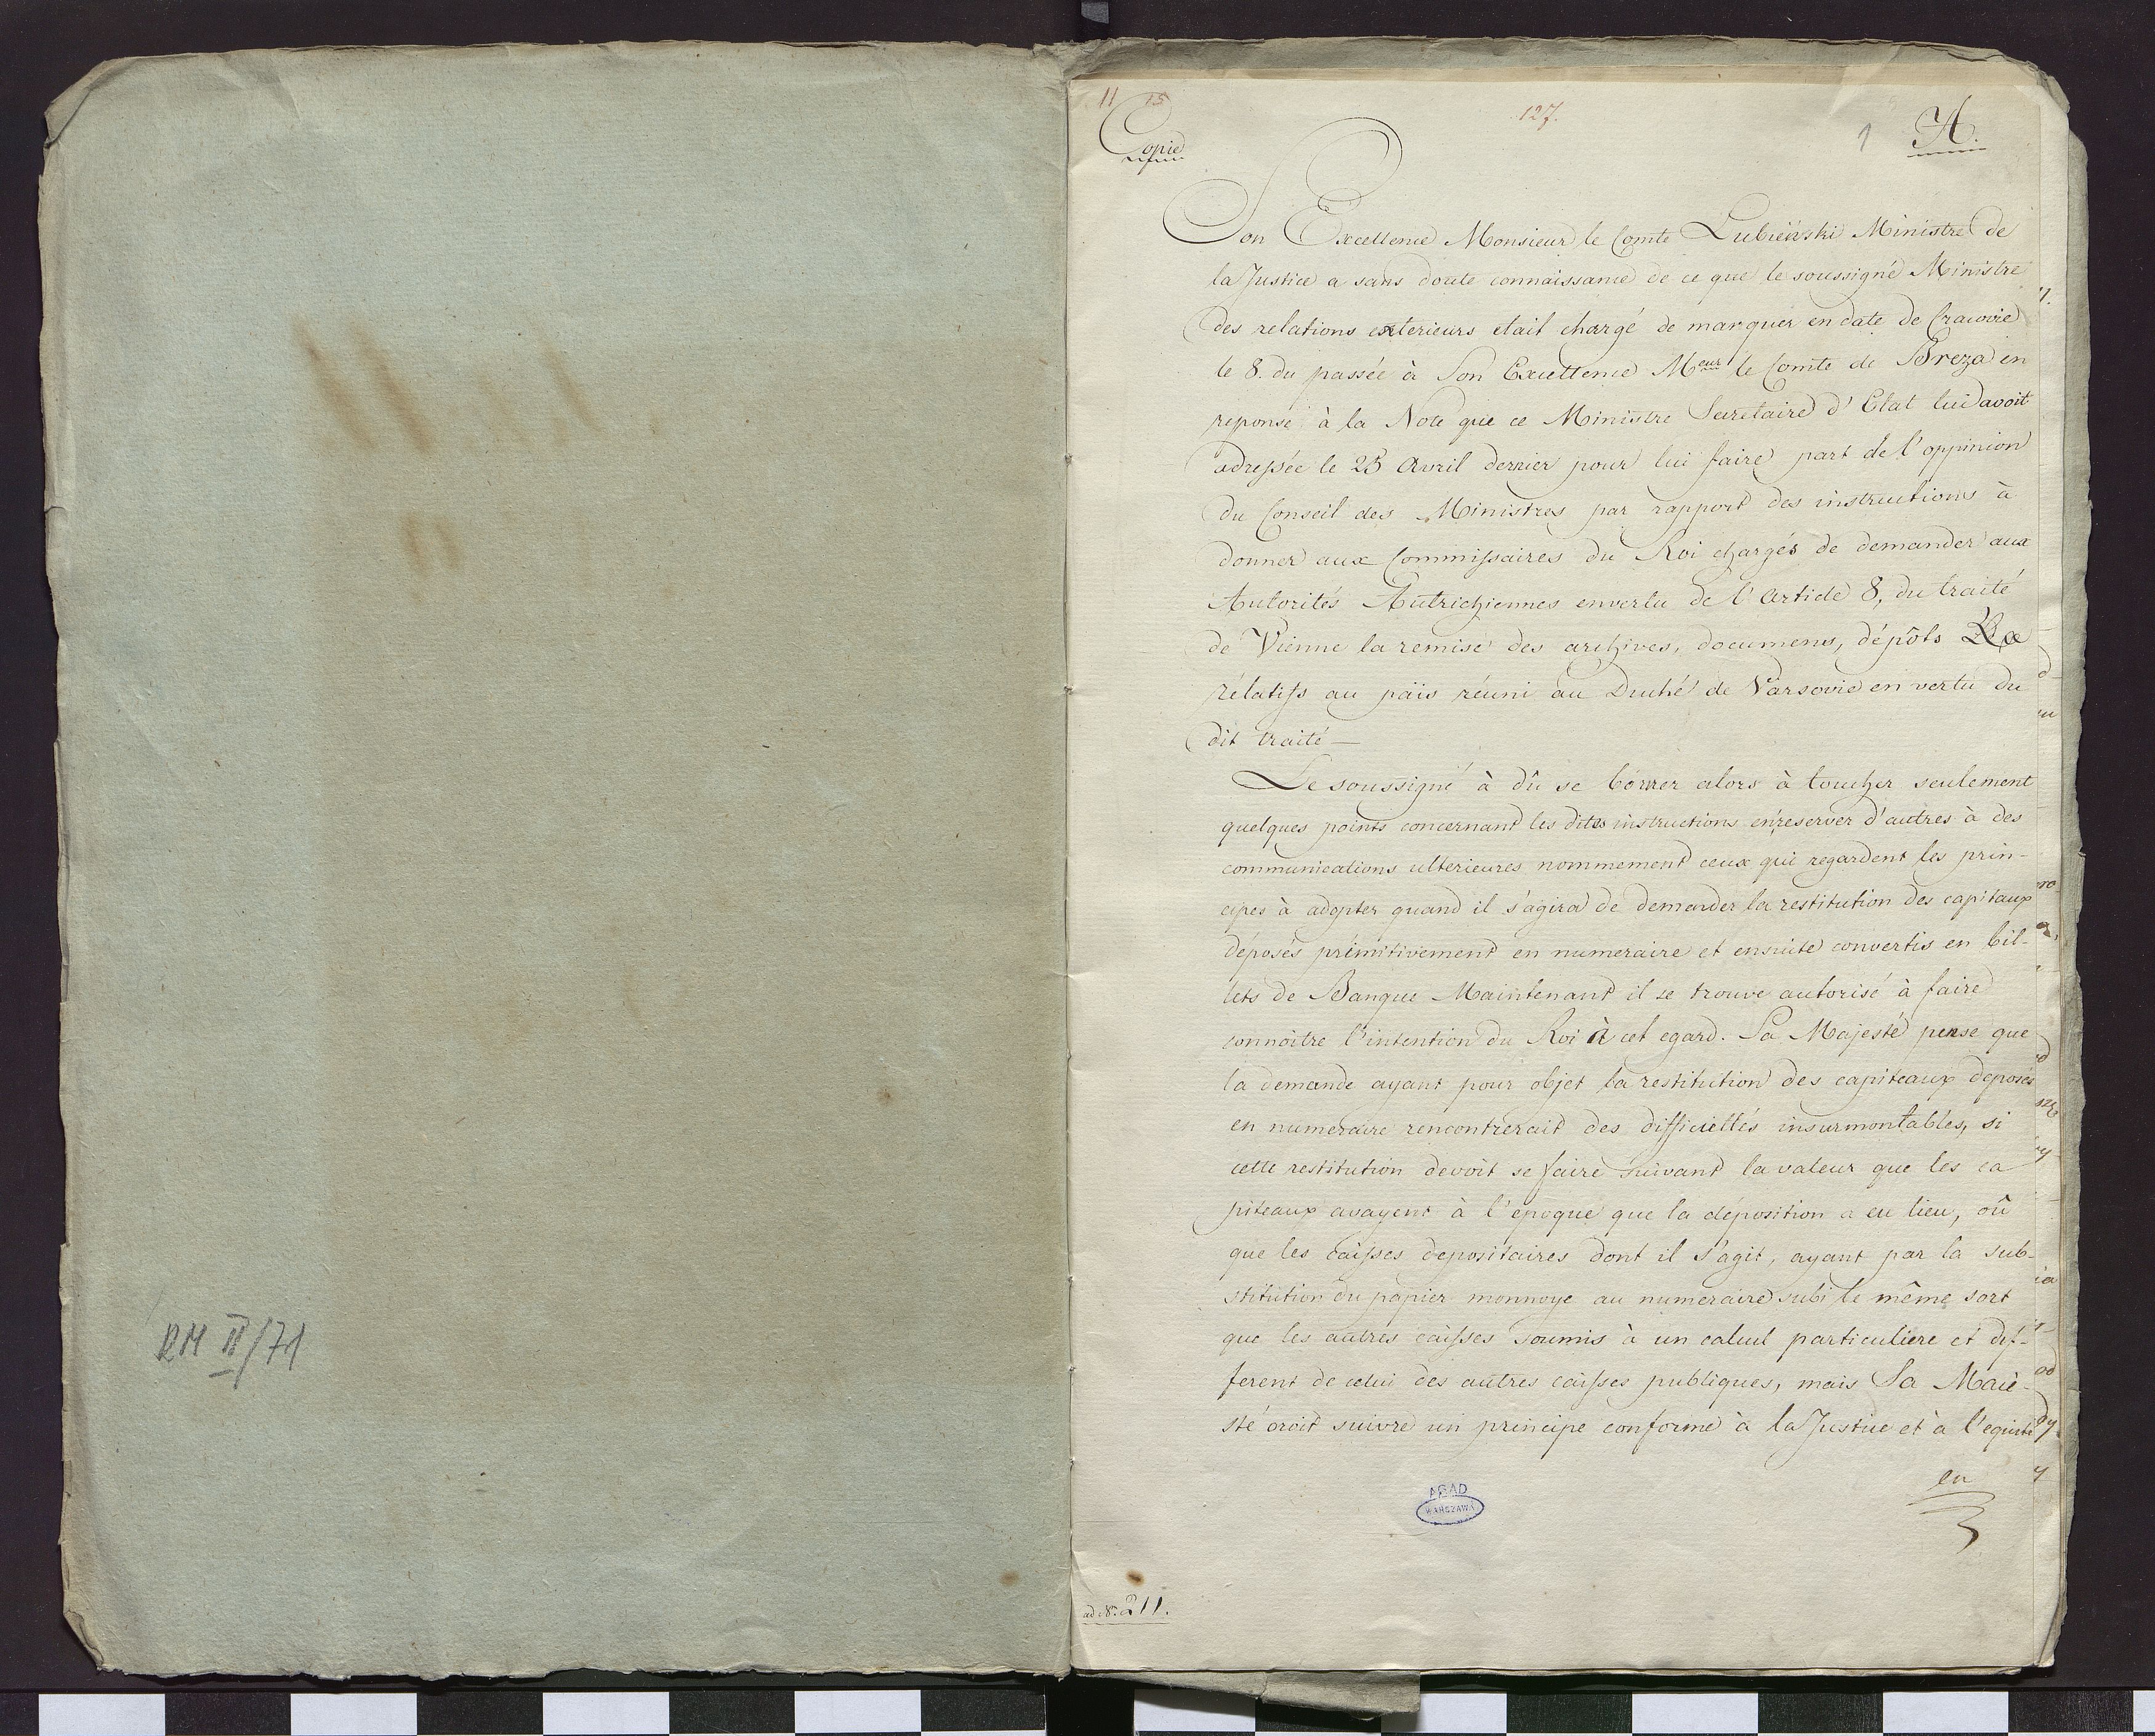 RM II/71
11 15
127.
1
A.
Copie
Son Excellence Monsieur le Comte Lubieński Ministre de
la Justice a sans doute connaissance de ce que le soussigné Ministre
des relations exterieurs etait chargé de marquer en date de Cracovie
le 8. du passée à Son Excellence Meur le Comte de Breza en
reponse à la Note que ce Ministre Secretaire d'Etat lui avoit
adressée le 25 Avril dernier pour lui faire part de l'oppinion
du Conseil des Ministres par rapport des instructions à
donner aux Commissaires du Roi chargés de demander aux
Autorités Autrichiennes envertu de l'Article 8, du traité
de Vienne la remise des archives, documens, dépôts &c
rélatifs au païs réuni au Duché de Varsovie en vertu du
dit traité —
Le soussigné à dû se borner alors à toucher seulement
quelques points concernant les dites instructions en reserver d'autres à des
communications ulterieures nommement ceux qui regardent les prin-
cipes à adopter quand il s'agira de demander la restitution des capitaux
deposés primitivement en numeraire et ensuite convertis en bil-
lets de Banque Maintenant il se trouve autorisé à faire
connoitre l'intention du Roi à cet egard. Sa Majesté pense que
la demande ayant pour objet la restitution des capiteaux deposés
en numeraire rencontrerait des difficiultés insurmontables, si
cette restitution devoit se faire suivant la valeur que les ca
piteaux avayent à l'epoque que la déposition a eu lieu, où
que les caisses depositaires dont il s'agit, ayant par la sub-
stitution du papier monnoye au numeraire subi le même sort
que les autres caisses soumis à un calcul particuliere et dif-
ferent de celui des autres caisses publiques, mais Sa Maie-
sté croit suivre un principe conforme à la Justice et à l'equité
en
AGAD
WARSZAWA
ad No. 211.